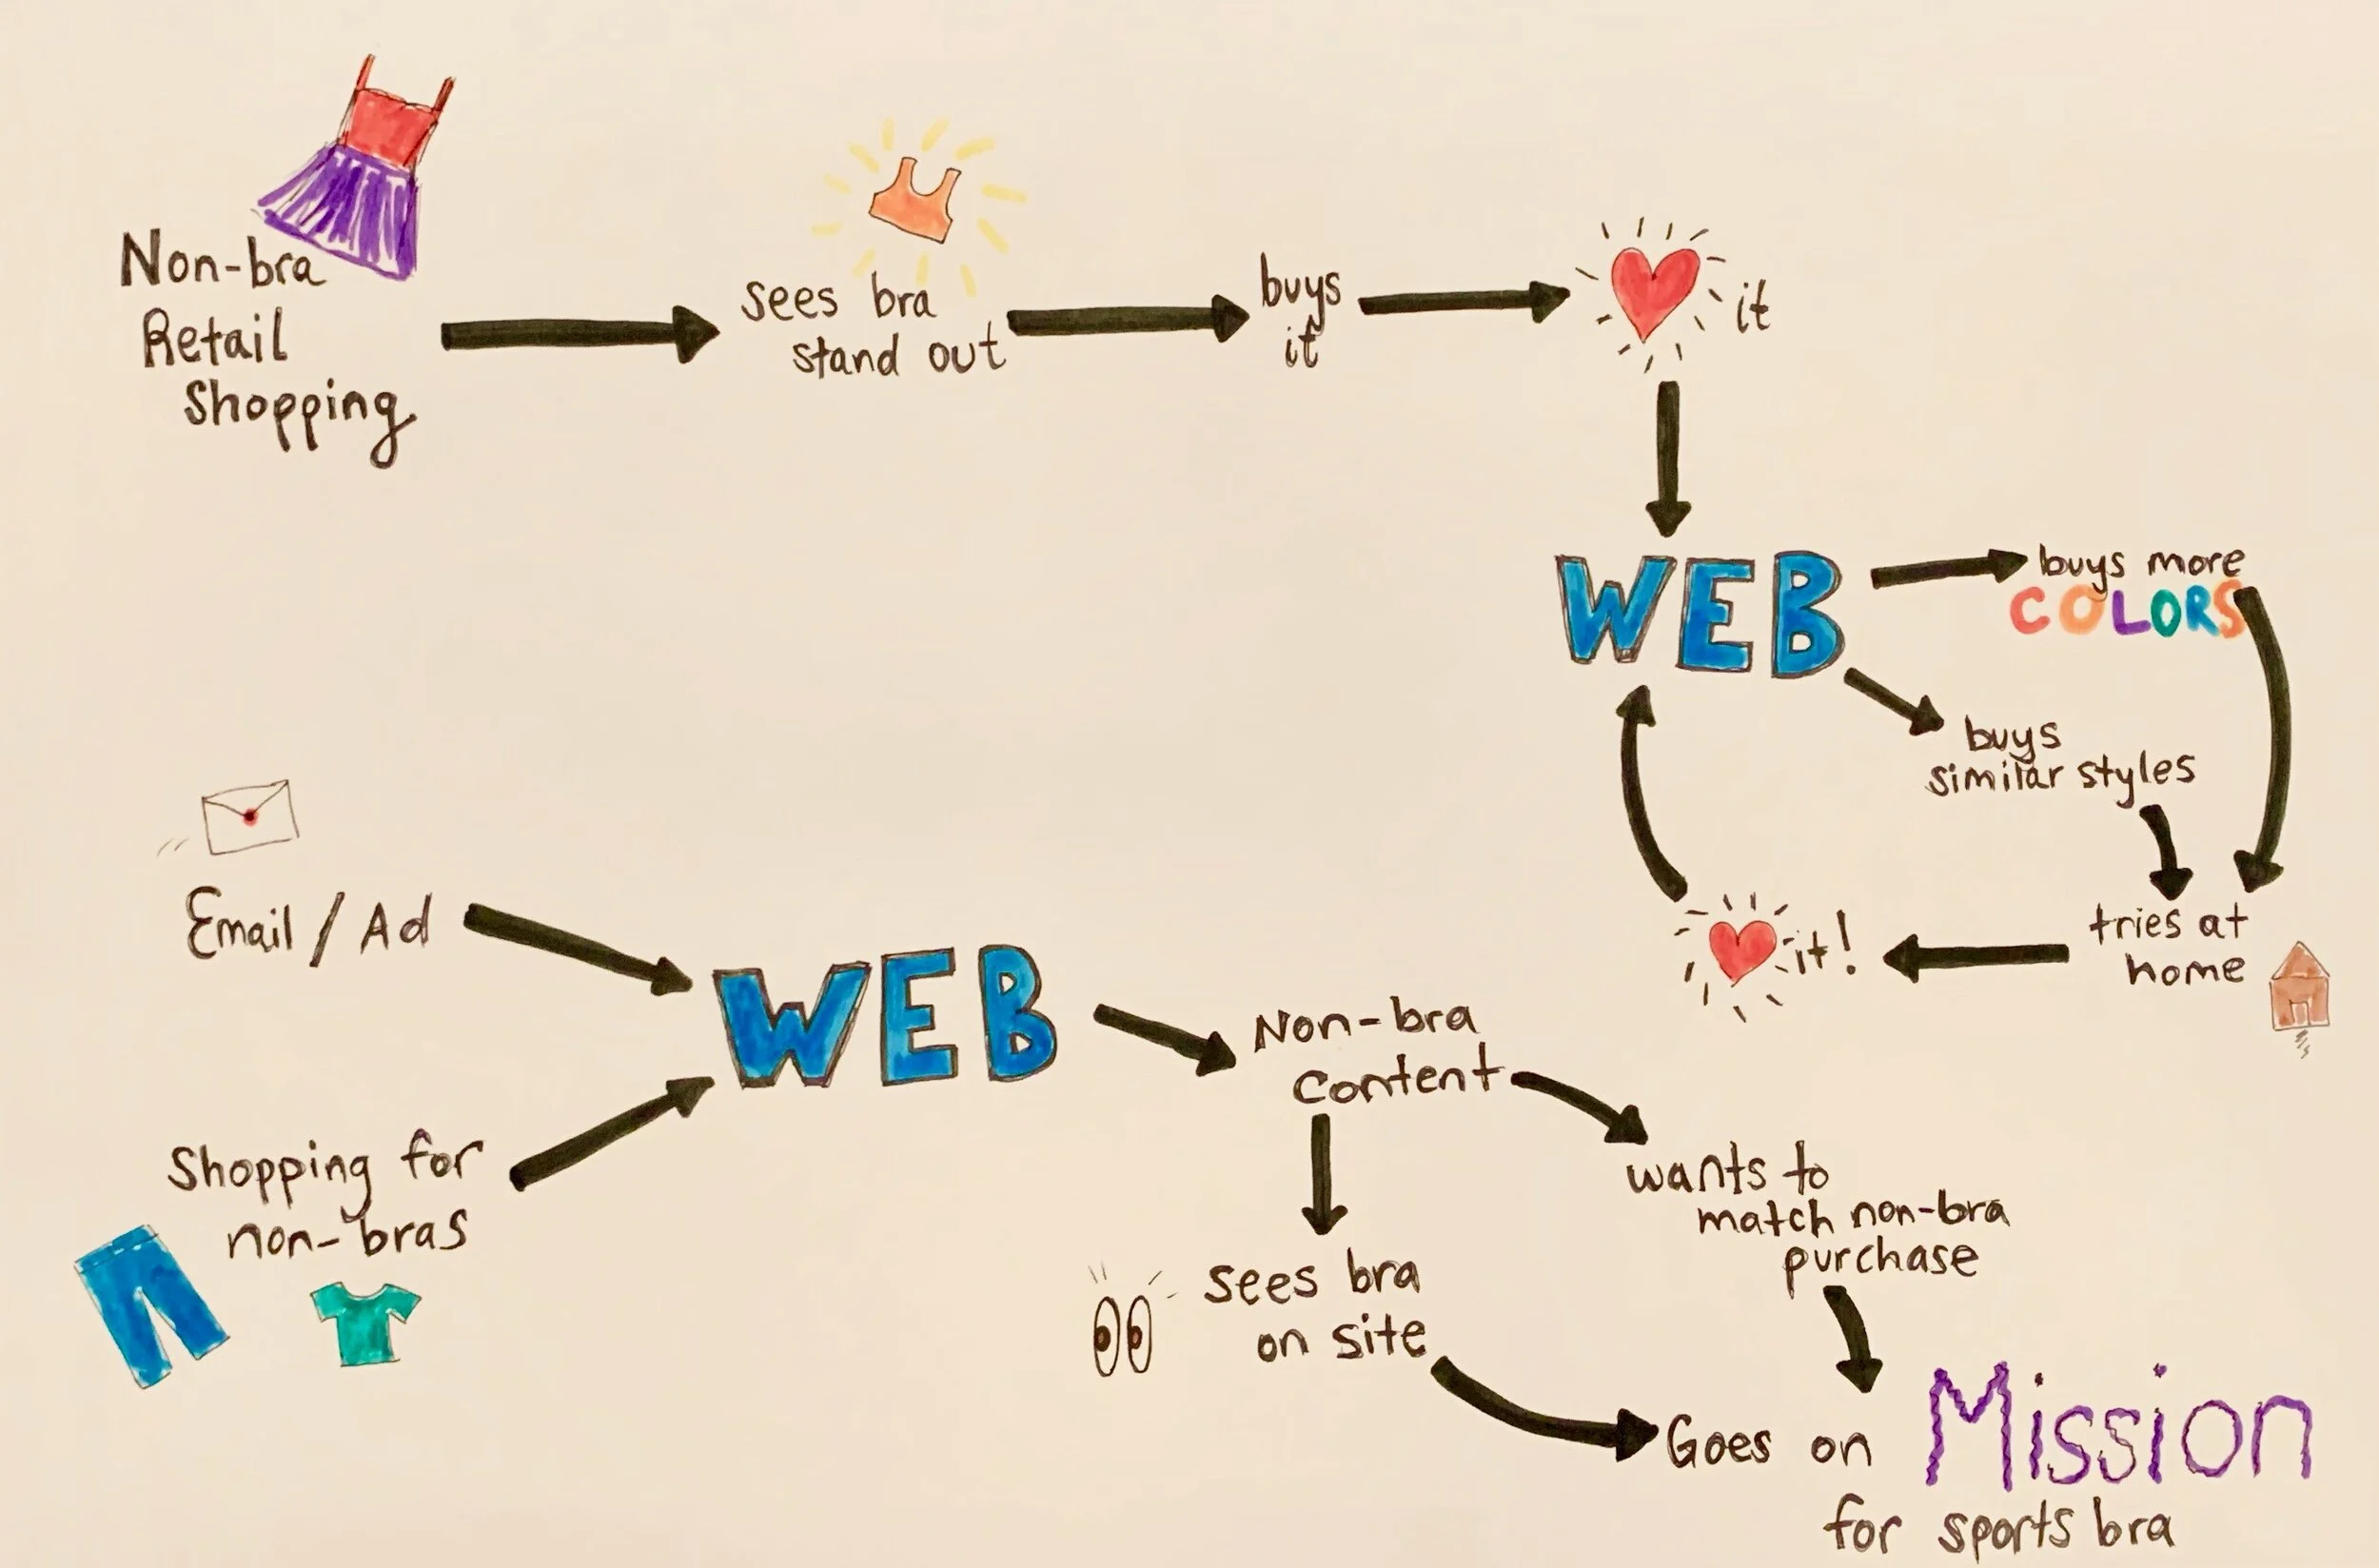 Non-bra
Retail
Shopping
sees bra
stand out
buys
it
it
WEB
buys more
COLORS
buys
similar styles
tries at
home
it!
Email / Ad
WEB
Shopping for
non-bras
Non-bra
Content
sees bra
on site
wants to
match non-bra
purchase
Goes on Mission
for sports bra